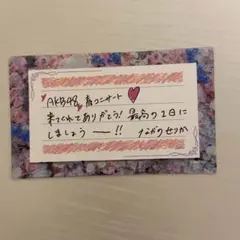 AKB48 春コンサート
来てくれてありがとう! 最高の1日に
しましょうー!! ながのせりか